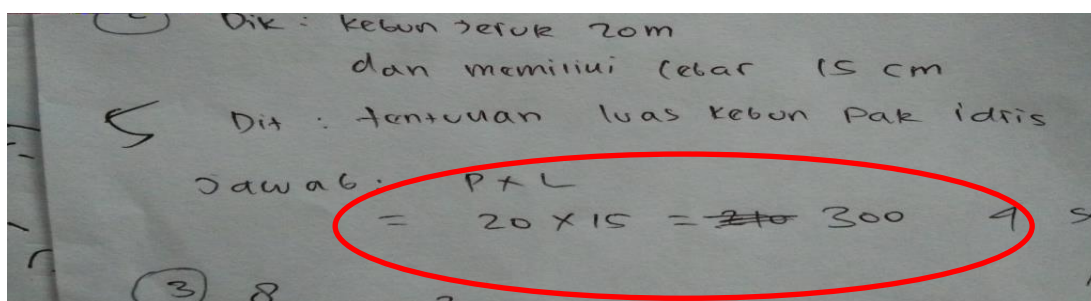 2 Dik : kebun jeruk 20m
dan memiliki lebar 15 cm
5 Dit : tentukan luas kebun Pak idris
Jawab : P x L
= 20 x 15 = 300 4
3 8